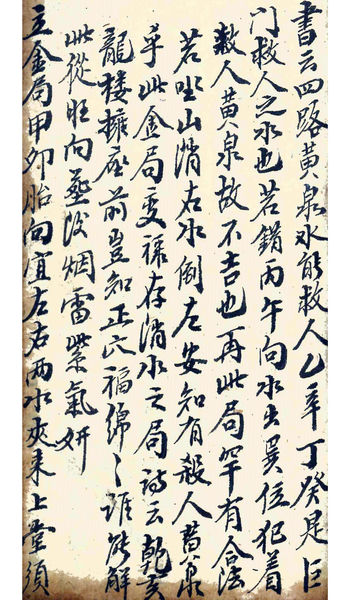 書云四路黄泉水能救人乙辛丁癸是巨
门救人之水也若錯丙午向水出巽位犯着
救人黄泉故不吉也再此局罕有合法
若坐山消右水倒左安知有殺人黄泉
乎此金局变禄存消水之局詩云乾亥
龍楼擁座前豈知正穴福綿〻誰能解
此從旺向無沒烟雷紫氣妍
立金局甲卯胎向宜左右两水夾来上堂須